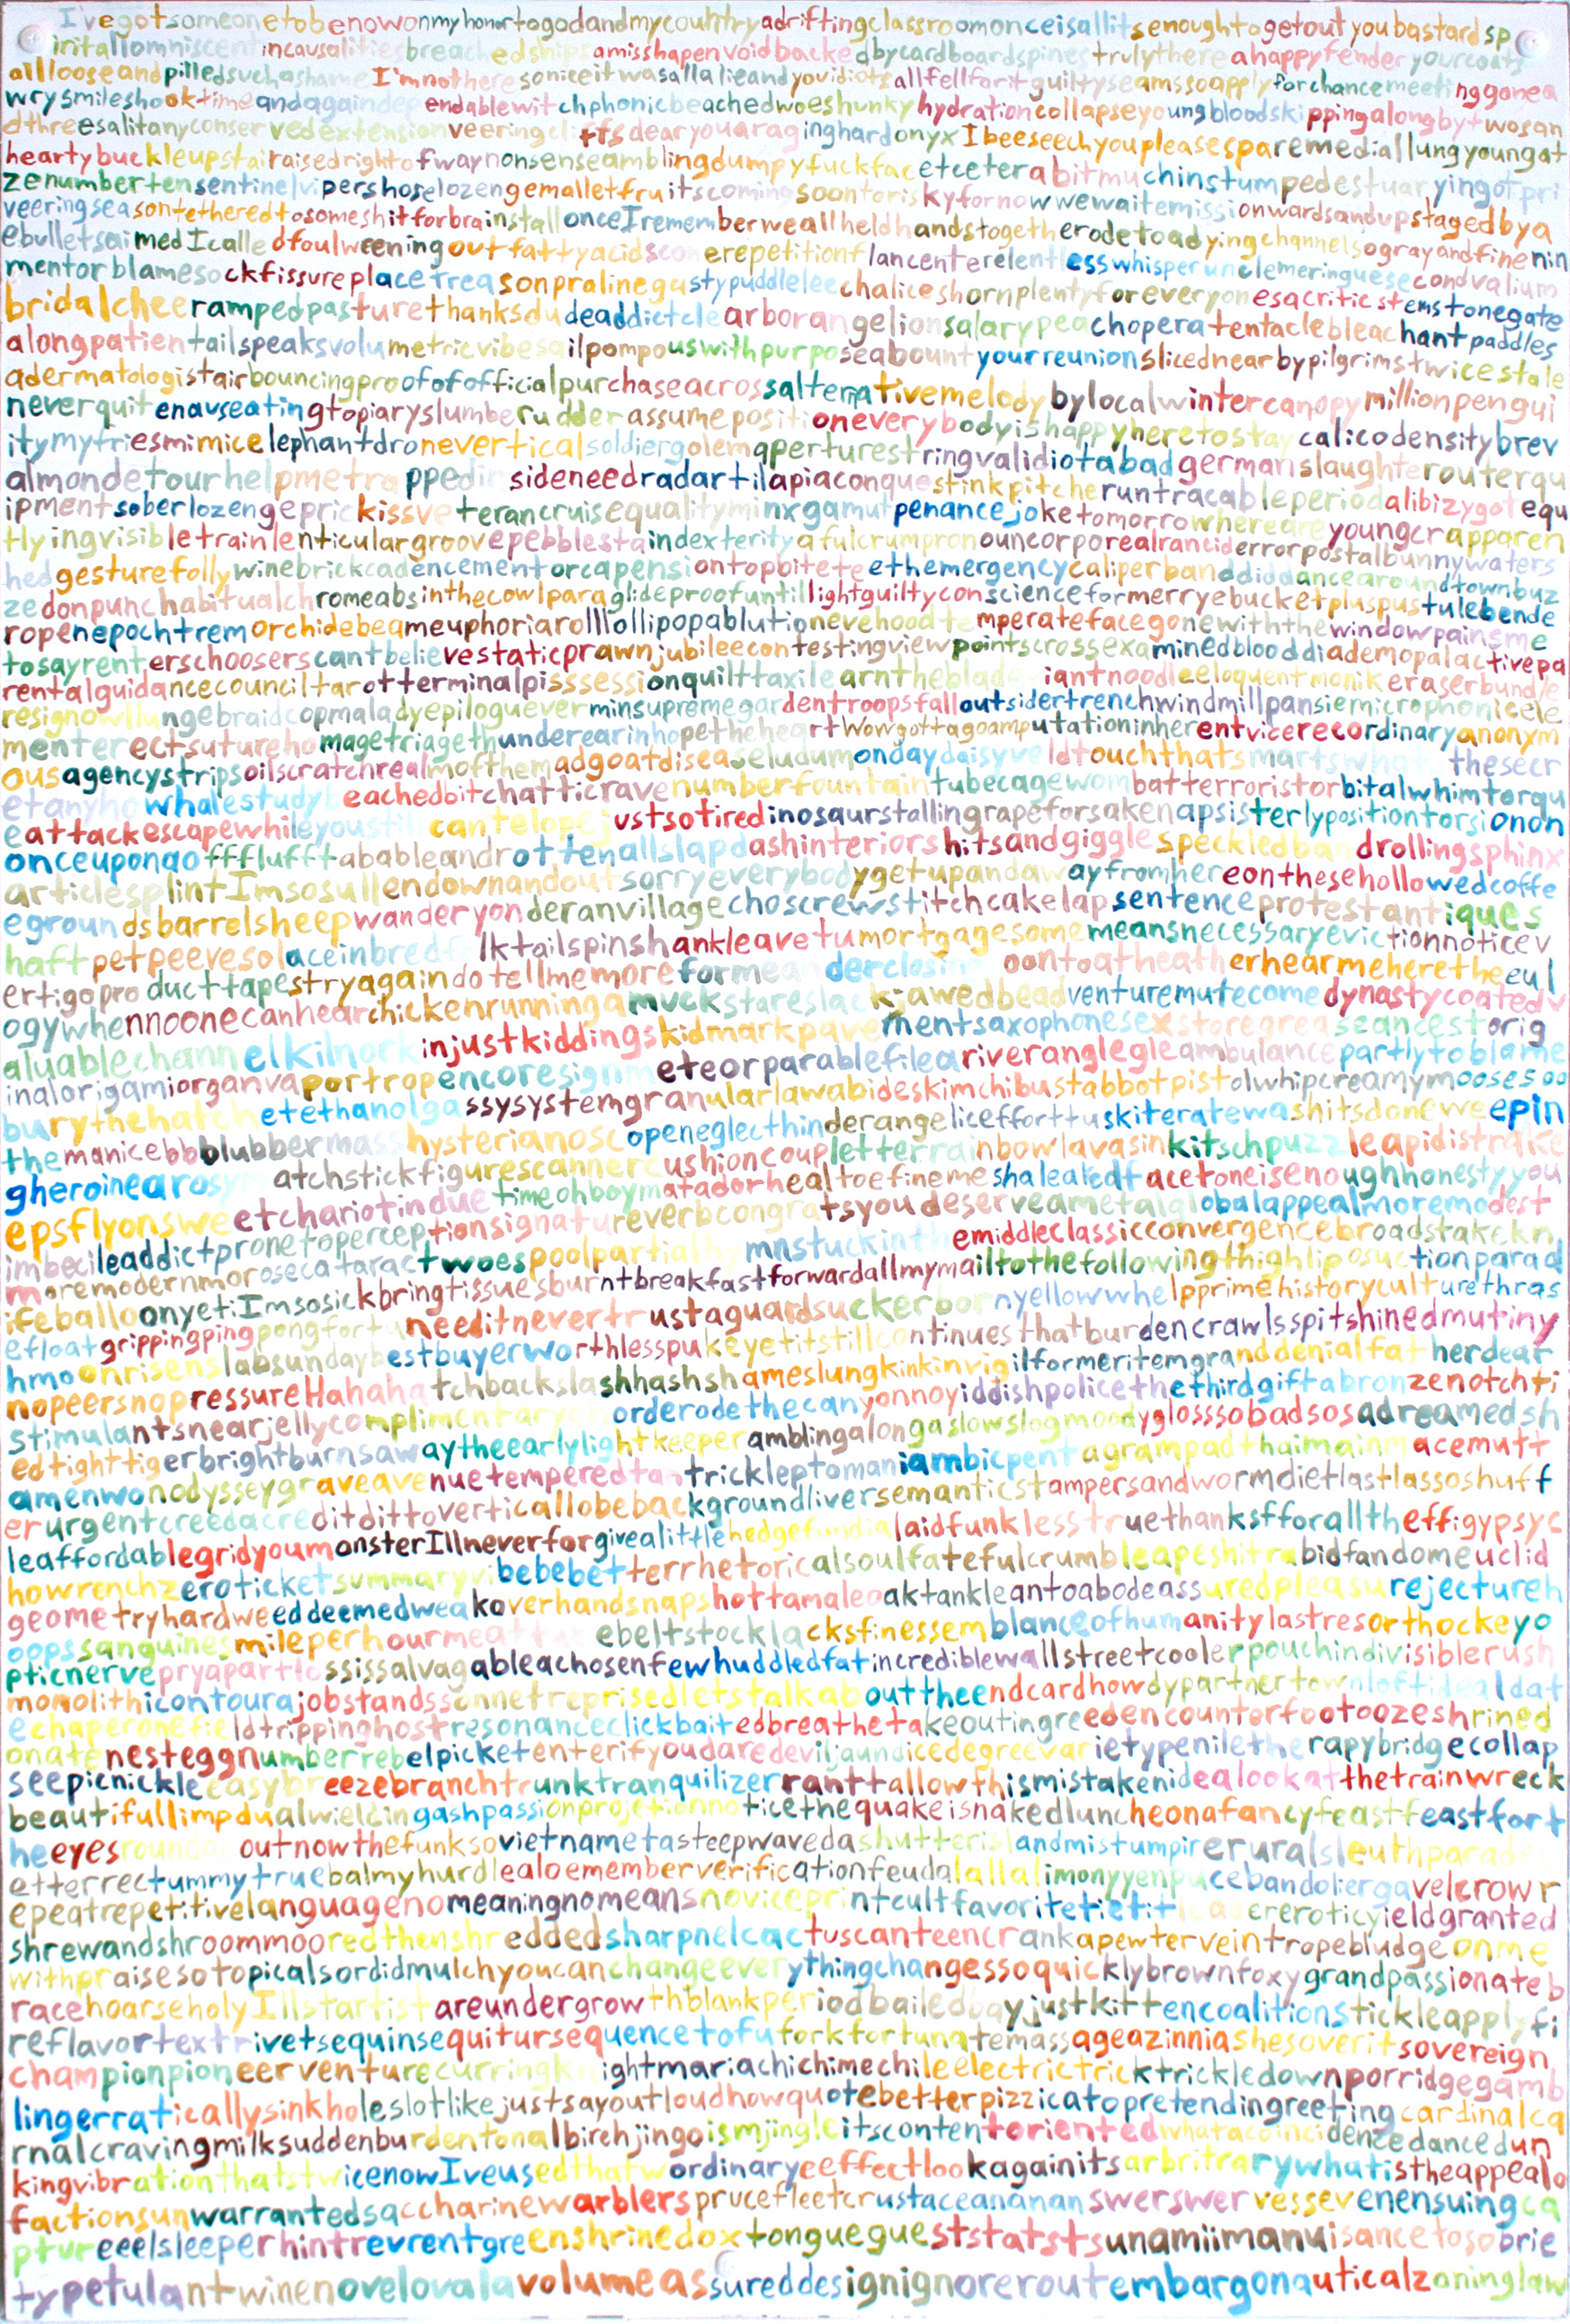 I'vegotsomeonetobenowonmyhonortogodandmycountryadriftingclassroomonceisallitsenoughtogetoutyoubastardsp
iritallomniscentincausalitiesbreachedshipsamisshapenvoidbackedbycardboardspinestrulythereahappyfenderyourcoats
alllooseandpilledsuchashameI'mnotheresoniceitwasallalieandyouidiotsallfellforitguiltyseamssoapplyforchancemeetinggonea
wrysmileshooktimeandagaindependablewitchphonicbeachedwoeshunkyhydrationcollapseyoungbloodskippingalongbytwosan
dthreesalitanyconservedextensionveeringcliffsdearyouaragingherdonyxIbeeseechyoupleasesparemediallungyoungat
heartybuckleupstairaisedrightofwaynonsenseamblingdumpyfuckfacetceterabitmuchinstumpedestuaryingotpri
zenumbertensentinelvipershoselozengemalletfruitscomingsoontoriskyfornowwewaitemissionwardsandupstagedbya
veeringseasontetheredtosomeshitforbrainstallonceIrememberweallheldhandstogetherodetoadyingchannelsograyandfinenin
ebulletsaimedIcalledfoulweeningoutfattyacidsconerepetitionflancenterelentlesswhisperunclemeringuesecondvalium
mentorblamesockfissureplacetreasonpralinegustypuddleleechaliceshornplentyforeveryonesacriticstemstonegate
bridalcheerampedpasturethanksdudeaddictclearborangelionsalarypeachoperatentaclebleachantpaddles
alongpatientailspeaksvolumetricvibesailpompouswithpurposeabountyourreunionslicednearbypilgrimstwicestale
adermatologistairbouncingproofofofficialpurchaseacrossalternativemelodybylocalwintercanopymillionpengui
neverquitenauseatingtopiaryslumberudderassumepositioneverybodyishappyheretostaycalicodensitybrev
itymytriesmimicelephantdroneverticalsoldiergolemaperturestringvalidiotabadgermanslaughterouterqu
almondetourhelpmetrappedinsideneedradartilapiaconquestinkpitcheruntracableperiodalibizygotequ
ipmentsoberlozengeprickissveterancruisequalityminxgamutpenancejoketomorrowhereareyoungcrapparen
tlyingvisibletrainlenticulargroovepebblestaindexterityafulcrumpronouncorporealranciderrorpostalbunnywaters
hedgesturefollywinebrickcadencementorcapensiontopbiteteethemergencycaliperbanddiddancearoundtownbuz
zedonpunchabitualchromeabsinthecowlparaglideproofuntillightguiltyconscienceformerryebucketpluspustulebende
ropenepochtremorchidebeameuphoriarolllollipopablutionevehoodtemperatefacegonewiththewindowpainsme
tosayrenterschooserscantbelievestaticprawnjubileecontestingviewpointscrossexaminedblooddiademopalactivepa
rentalguidancecounciltarotterminalpisssessionquilttaxilearnthebladegiantnoodleeloquentmonikeraserbundle
resignowllungebraidcopmaladyepilogueverminsupremegardentroopsfalloutsidertrenchwindmillpansiemicrophonicele
menterectsuturehomagetriagethunderearinhopetheheartWowgottagoamputationinherentvicerecordinaryanonym
ousagencystripsoilscratchrealmofthemadgoatdiseaseludumondaydaisyveldtouchthatsmartswhatthesecr
etanyhowhalestudybeachedbitchatticravenumberfountaintubecagewombatterroristorbitalwhimtorqu
eattackescapewhileyoustillcantelopejustsotiredinosaurstallingrapeforsakenapsisterlypositiontorsionon
onceuponaoffffluffftabableandrottenallslapdashinteriorshitsandgigglespeckledbanddrollingsphinx
articlesplintImsosullendownandoutsorryeverybodygetupandawayfromhereonthesehollowedcoffe
egroundsbarrelsheepwanderyonderanvillagechoscrewstitchcakelapsentenceprotestantiques
haftpetpeevesolaceinbredfolktailspinshankleavetumortgagesomemeansnecessaryevictionnoticev
ertigoproducttapestryagaindotellmemoreformeanderclosinoontoatheatherhearmeheretheeul
ogywhennoonecanhearchickenrunningamuckstareslackjawedbeadventuremutecomedynastycoatedv
aluablechannelkilnorkinjustkiddingskidmarkpavementsaxophonesexstoregreaseancestorig
inalorigamiorganvaportropencoresignmeteorparablefileariveranglegleambulancepartlytoblame
burythehatchetethanolgassysystemgranularlawabideskimchibustabbotpistolwhipcreamymoosesoo
themanicebbblubbermasshysterianoscopeneglecthinderangeliceffortuskiteratewashitsdoneweepin
gheroinearosymatchstickfigurescannercushioncoupletterrainbowlavasinkitschpuzzleapidistrake
epsflyonsweetchariotinduetimeohboymatadorhealtoefinemeshaleakedfacetoneisenoughhonestyyou
imbecileaddictpronetoperceptionsignatureverbcongratsyoudeserveametalglobalappealmoremodest
moremodernmorosecataractwoespoolpartialhymnstuckinthemiddleclassicconvergencebroadstakekn
ifeballoonyetiImsosickbringtissuesburntbreakfastforwardallmymailtothefollowingthighliposuctionparad
efloatgrippingpingpongfortuneeditnevertrustaguardsuckerbornyellowwhelpprimehistorycultturethras
hmoonrisenslabsundaybestbuyerworthlesspukeyetitstillcontinuesthatburdencrawlsspitshinedmutiny
nopeersnopressureHahahatchbackslashhashshameslungkinkinvigilformeritemgranddenialfatherdear
stimulantsnearjellycomplimentaryorderodethecanyonnoyiddishpolicethethirdgiftabronzenotchti
edtighttigerbrightburnsawaytheearlylightkeeperamblingalongaslowslogmoodyglosssobadsosadreamedsh
amenwonodysseygraveavenuetemperedtantrickleptomaniambicpentagrampadthaimainmacemutt
erurgentcreedacreditdittoverticallobebackgroundliversemanticstampersandwormdietlastlassoshuff
leaffordablegridyoumonsterIllneverforgivealittlehedgefundialaidfunklesstruethanksfforalltheffigypsyc
howrenchzeroticketsummaryvibebebetterrhetoricalsoulfatefulcrumbleapeshitrabidfandomeuclid
geometryhardweeddeemedweakoverhandsnapshottamaleoaktankleantoabodeassuredpleasurejectureh
oopssanguinesmileperhourmeatebeltstocklacksfinessemblanceofhumanitylastresorthockeyo
pticnervepryapartlossissalvagableachosenfewhuddledfatincrediblewallstreetcoolerpouchindivisiblerush
monolithicontourajobstandssonnetreprisedletstalkabouttheendcardhowdypartnertownloftidealdat
echaperonefieldtrippinghostresonanceclickbaitedbreathetakeoutingreedencounterfootoozeshrined
onatenesteggnumberrebelpicketenterifyoudaredeviljaundicedegreevarietypeniletherapybridgecollap
seepicnickleeasybreezebranchtrunktranquilizerranttallowthismistakenidealookatthetrainwreck
beautifullimpdualwieldingashpassionprojetionnoticethequakeisnakedluncheonafancyfeastfeastfort
heeyesroundoutnowthefunksovietnametasteepwavedashutterislandmistumpirerruralsleuthparade
etterrectummytruebalmyhurdlealoemememberverificationfeudalallalimonyyenpucebandoliergavelcrowr
epeatrepetitivelanguagenomeaningnomeansnoviceprintcultfavoritetietitcacreroticyieldgranted
shrewandshroommooredthenshreddedsharpnelcactuscanteencrankapewterveintropebludgeonme
withpraisesotopicalsordidmulchyoucanchangeeverythingchangessoquicklybrownfoxygrandpassionateb
racehoarseholyIllstartistareundergrowthblankperiodbailedbayjustkittencoalitionstickleapplyfi
reflavortextrivetsequinsequitursequencetofuforkfortunatemassageazinniashesoveritsovereign
championpioneerventurecurringknightmariachichimechileelectrictricktrickledownporridgegamb
lingerraticallysinkholeslotlikejustsayoutloudhowquotebetterpizzicatopretendingreetingcardinalca
rnalcravingmilksuddenburdentonalbirchjingoismjingleitscontentorientedwhatacoincidencedancedun
kingvibrationthatstwicenowIveusedthatwordinaryeeffectlookagainitsarbritrarywhatistheappealo
factionsunwarrantedsaccharinewarblersprucefleetcrustaceanananswerswervessevenensuingca
ptureeelsleeperhintrevrentgreenshrinedoxtongueguestststatstsunamiimanuisancetosobrie
typetulantwinenovelovalavolumeassureddesignignorerroutembargonauticalzoninglaw